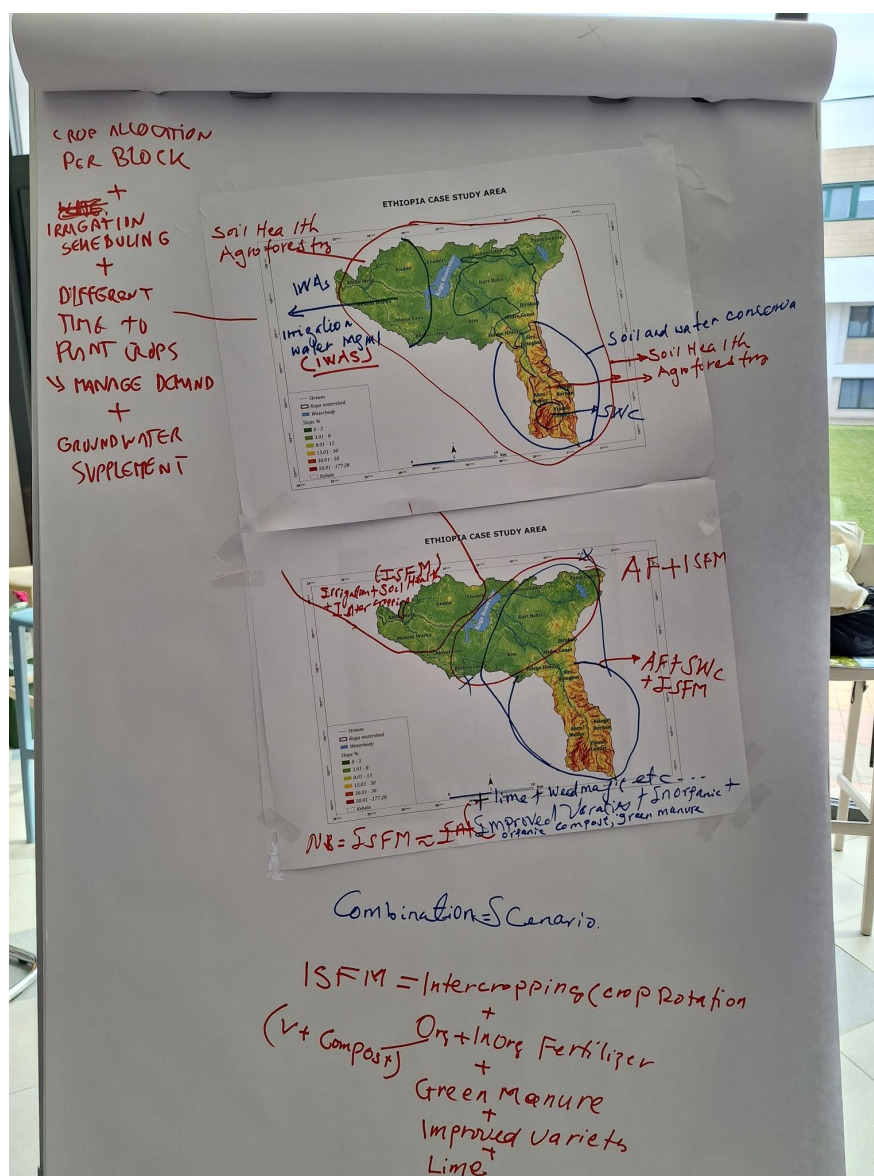 CROP ALLOCATION
PER BLOCK
+
IRRIGATION
SCHEDULING
+
DIFFERENT
TIME TO
PLANT CROPS
↘ MANAGE DEMAND
+
GROUNDWATER
SUPPLEMENT
ETHIOPIA CASE STUDY AREA
Soil Health
Agroforestry
IWAS
Irrigation
water Mgmt
(IWAS)
Koga Reservoir
Kurt Bahir
Soil and water conserva
Soil Health
Agroforestry
SWC
Stream
Koga watershed
Waterbody
Slope %
0 - 3
3.01 - 8
8.01 - 15
15.01 - 30
30.01 - 50
50.01 - 177.28
Kebele
ETHIOPIA CASE STUDY AREA
(ISFM)
Irrigation + Soil Health
+ Intercropping
AF + ISFM
Kudmi
Koga Reservoir
Kurt Bahir
AF + SWC
+ ISFM
Stream
Koga watershed
Waterbody
Slope %
0 - 3
3.01 - 8
8.01 - 15
15.01 - 30
30.01 - 50
50.01 - 177.28
Kebele
+ lime + etc ...
Improved + Inorganic +
organic compost, green manure
NB = ISFM ≈
Combination = Scenario.
ISFM = Intercropping (crop Rotation
+
(V + Compost) Org + InOrg Fertilizer
+
Green Manure
+
Improved variets
+
Lime